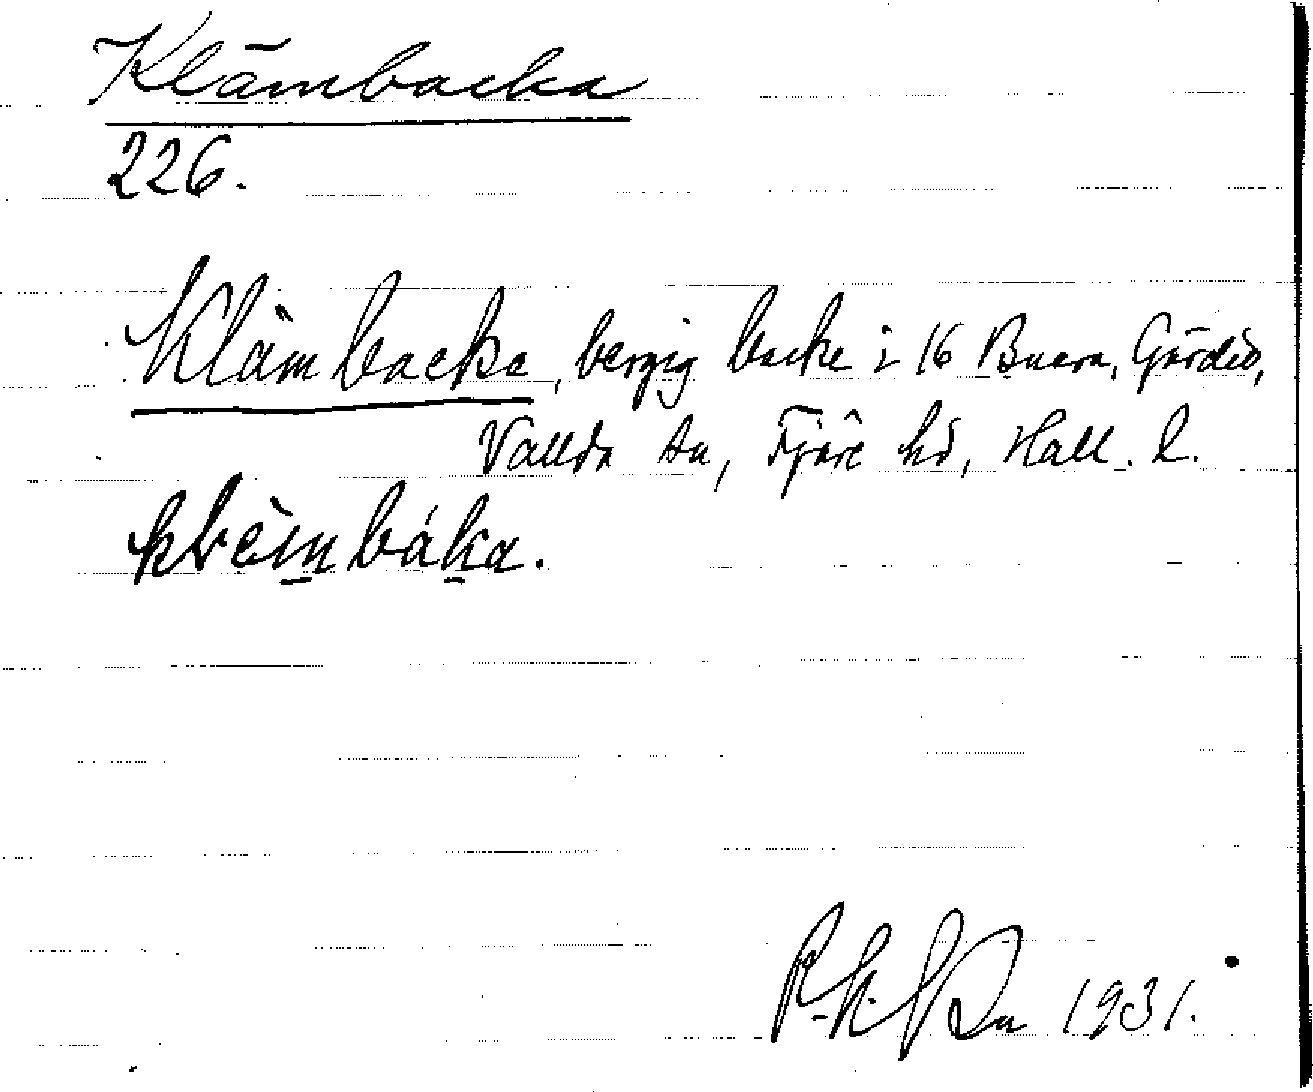 Klämbacka
226.
Klämbacka, bergig backe i 16 Buera, Gärdet,
Vallda sn, Fjäre hd, Hall. l.
1931.